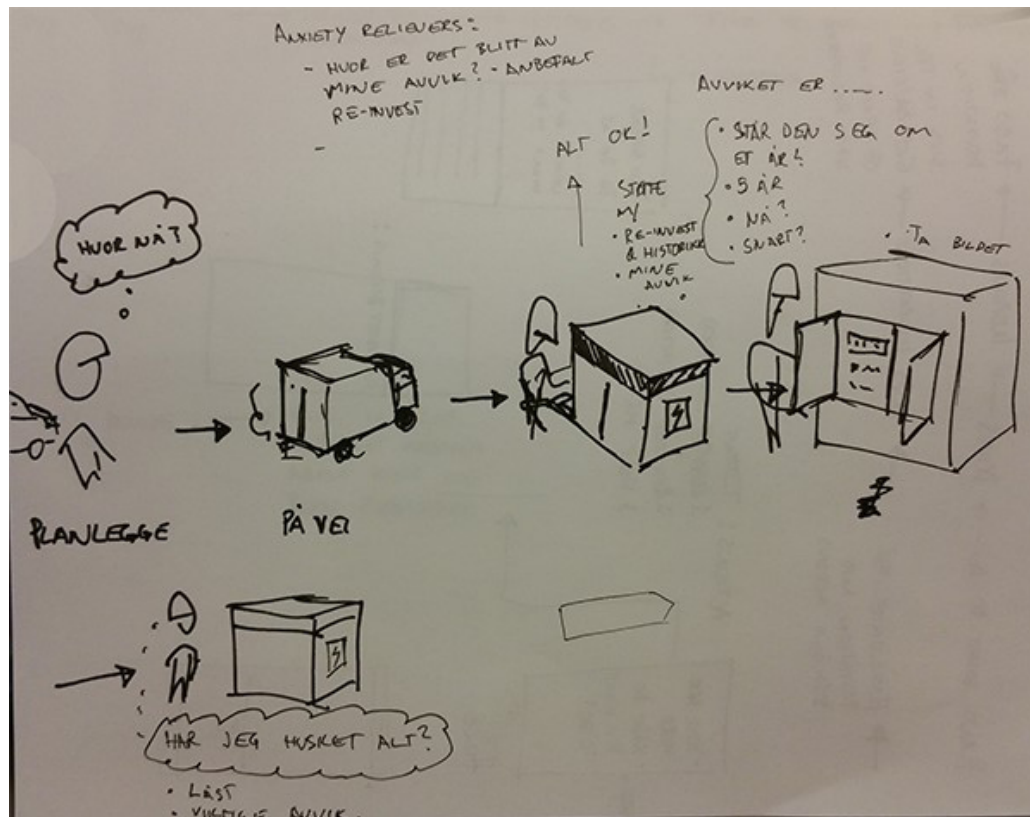 ANXIETY RELIEVERS:
- HVOR ER DET BLITT AV
MINE AVVIK? - ANBEFALT
RE-INVEST
-
HVOR NÅ?
ALT OK!
STATE
M/
• RE-INVEST
& HISTORIKK
• MINE
AVVIK
AVVIKET ER .....
• STÅR DEN SEG OM
ET ÅR?
• 5 ÅR
• NÅ?
• SNART?
• TA BILDET
PLANLEGGE
PÅ VEI
HAR JEG HUSKET ALT?
• LÅST
• AVVIK